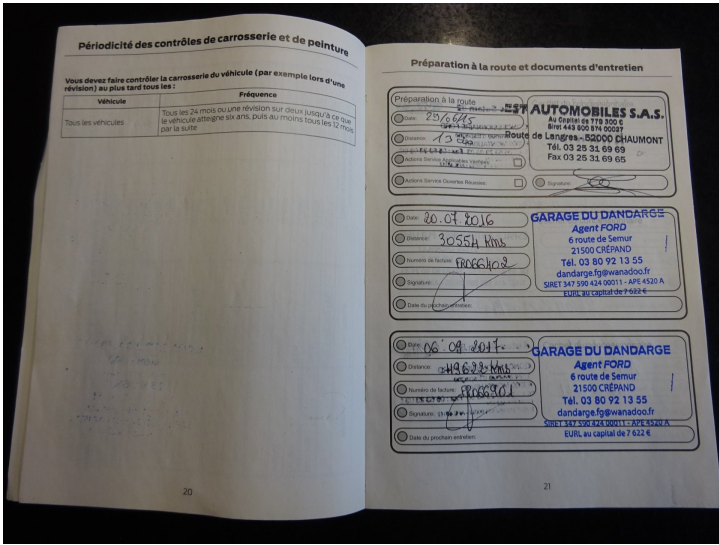 Périodicité des contrôles de carrosserie et de peinture
Vous devez faire contrôler la carrosserie du véhicule (par exemple lors d'une
révision) au plus tard tous les :
Véhicule
Fréquence
Tous les véhicules
Tous les 24 mois ou une révision sur deux jusqu'à ce que
le véhicule atteigne six ans, puis au moins tous les 12 mois
par la suite
20
Préparation à la route et documents d'entretien
Préparation à la route
Date: 29/06/15
Distance:
Actions Service Applicables Vérifiées:
Actions Service Ouvertes Réussies:
Signature:
EST AUTOMOBILES S.A.S.
Au Capital de 779 300 €
Siret 443 800 574 00037
Route de Langres - 52000 CHAUMONT
Tél. 03 25 31 69 69
Fax 03 25 31 69 65
Date: 20.07.2016
Distance: 30554 Kms
Numéro de facture: FR066402
Signature:
Date du prochain entretien:
GARAGE DU DANDARGE
Agent FORD
6 route de Semur
21500 CRÉPAND
Tél. 03 80 92 13 55
dandarge.fg@wanadoo.fr
SIRET 347 590 424 00011 - APE 4520 A
EURL au capital de 7 622 €
Date: 06.09.2017
Distance: 49622 Kms
Numéro de facture: FR066901
Signature:
Date du prochain entretien:
GARAGE DU DANDARGE
Agent FORD
6 route de Semur
21500 CRÉPAND
Tél. 03 80 92 13 55
dandarge.fg@wanadoo.fr
SIRET 347 590 424 00011 - APE 4520 A
EURL au capital de 7 622 €
21